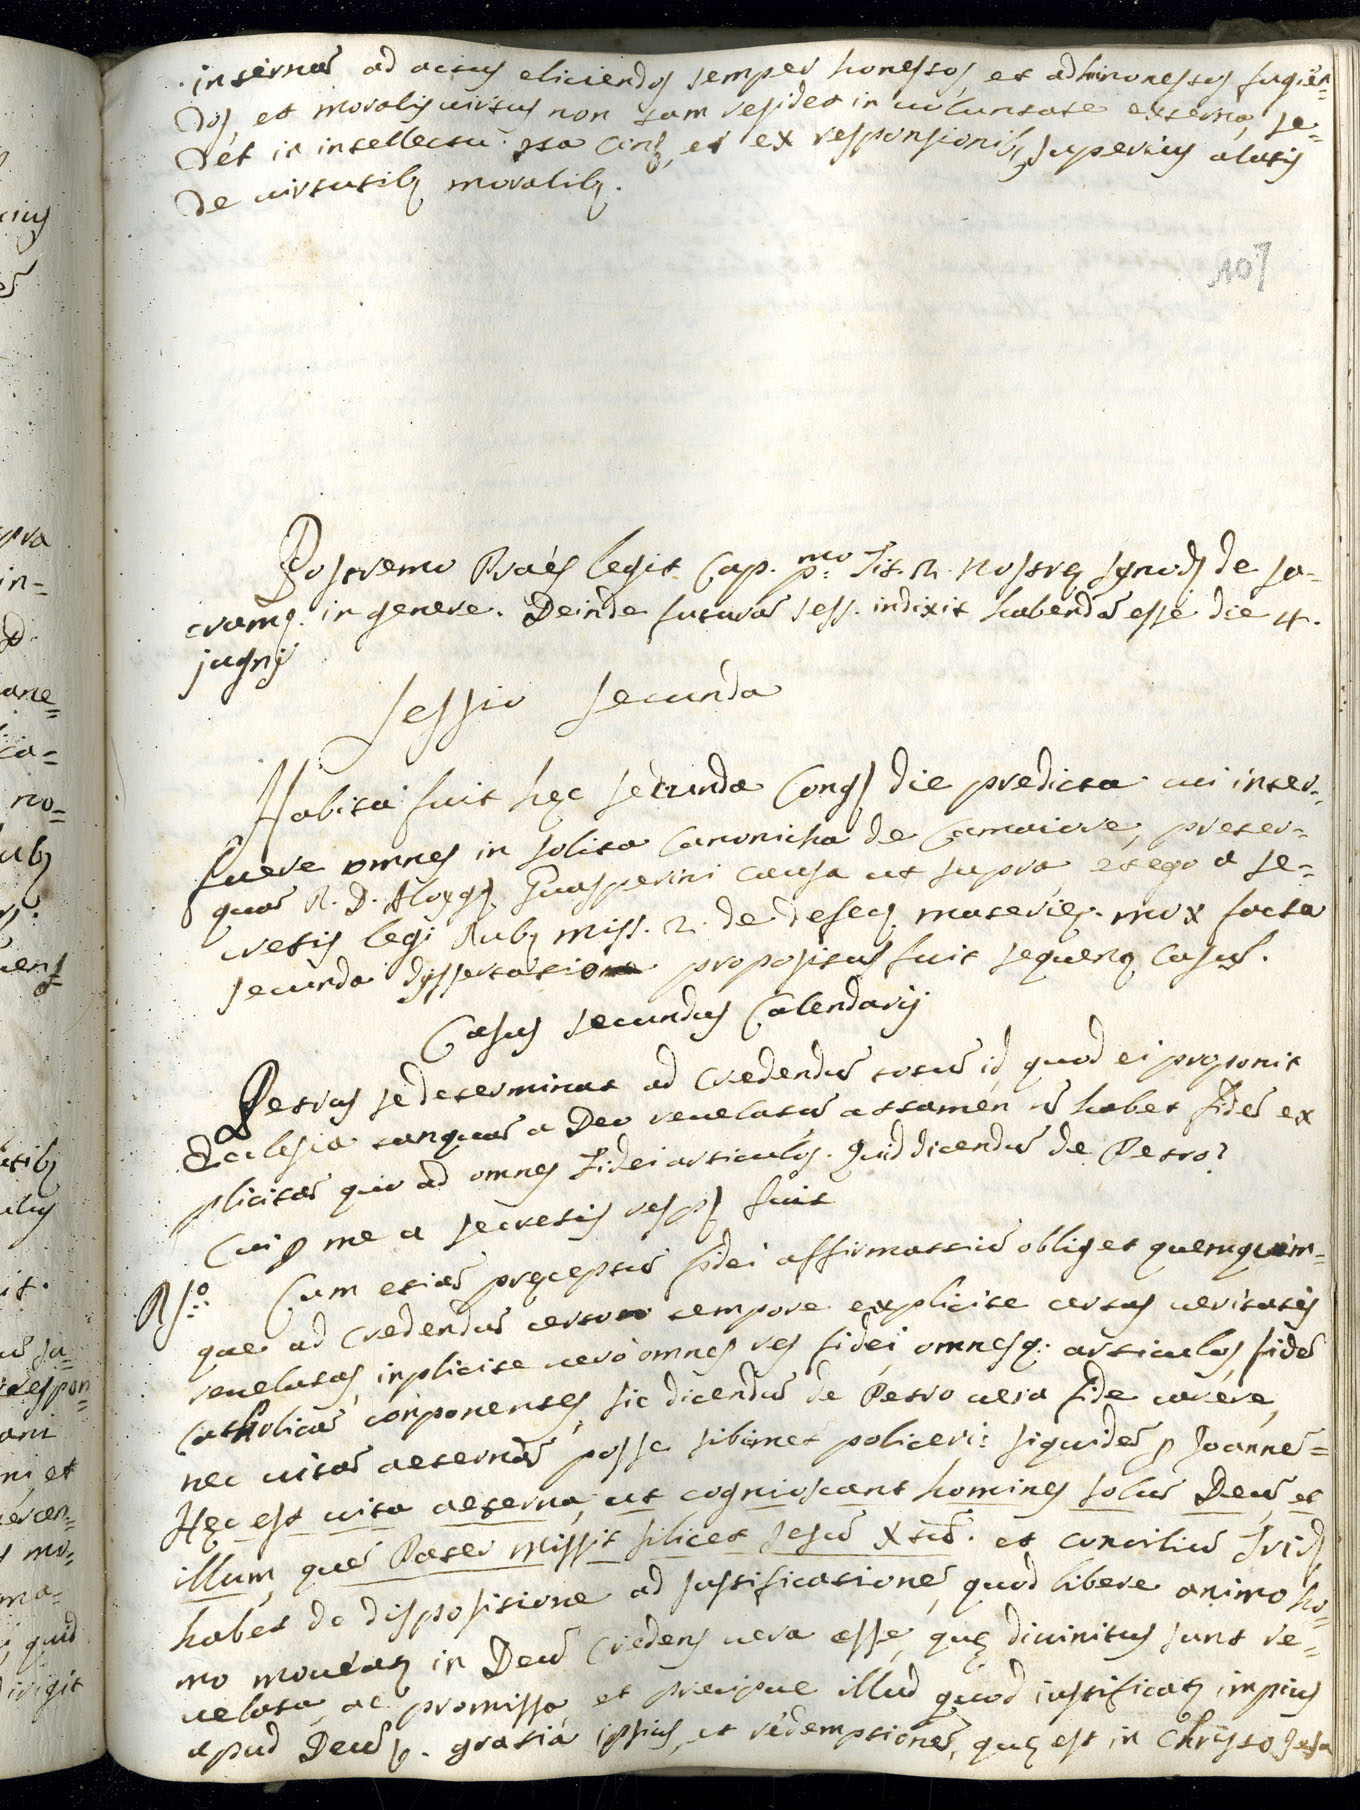 internā ad actus eliciendos semper honestos, et adminonestos fugiēn=
dos, et moralis uirtus non tam residet in uoluntate externa, se=
det in intellectu ita Conz, et ex responsionibꝫ superius alatis
de uirtutibꝫ moralibꝫ.
107
Postremo Praés legit Cap. p.mo Tit. 2. nostrę synodi de sa=
cramꝫ. in genere. Deinde futurā sess. indixit habendā esse die 4.
jugnij
Sessio Secunda
Habita fuit hęc secunda Congꝫ die predicta cui inter=
fuere omnes in solita Canonicha de Camaiore, preter=
quā R. D. Aloygꝫ Guasperini causa ut supra, et ego a se=
cretis legi Rubꝫ miss. 2. de defecꝫ materięꝫ. mox facta
secunda dyssertatione propositus fuit sequens Casus.
Casus secundus Calendarij
Petrus se determinat ad credendū totū id quod ei proponit
Ecclesia tanquā a Deo reuelatū attamen nō habet fidē ex
plicitā quo ad omnes Fidei articulos. Quid dicendū de Petro?
Cui ꝑ me a secretis respꝫ fuit
Rs.º Cum etiā pręceptū fidei affirmatiuū obliget quemquim=
que ad credendū certo tempore explicite certas ueritates
reuelatas, inplicite uero omnes res fidei, omnesq: articulos fidē
Catholicā conponentes, sic dicendū de Petro uera fide carere,
nec uitā aeternā posse sibimet policeri: siquidē ꝑ Joannē=
Hęc est uita aeterna, ut cognioscant homines solū Deū, et
illum, quē Pater missit silicet Jesū Xtū. et concilium Tridꝫ
habet de dispositione ad justificationē, quod libere animo ho=
mo mouetaꝫ in Deū credens uera esse, quę diuinitus sunt re=
uelata, ac promissa, et precipue illud quod iustificatꝫ impius
apud Deū ꝑ. gratiā ipsius, et rédemptionē, quę est in Chrysto Jesu